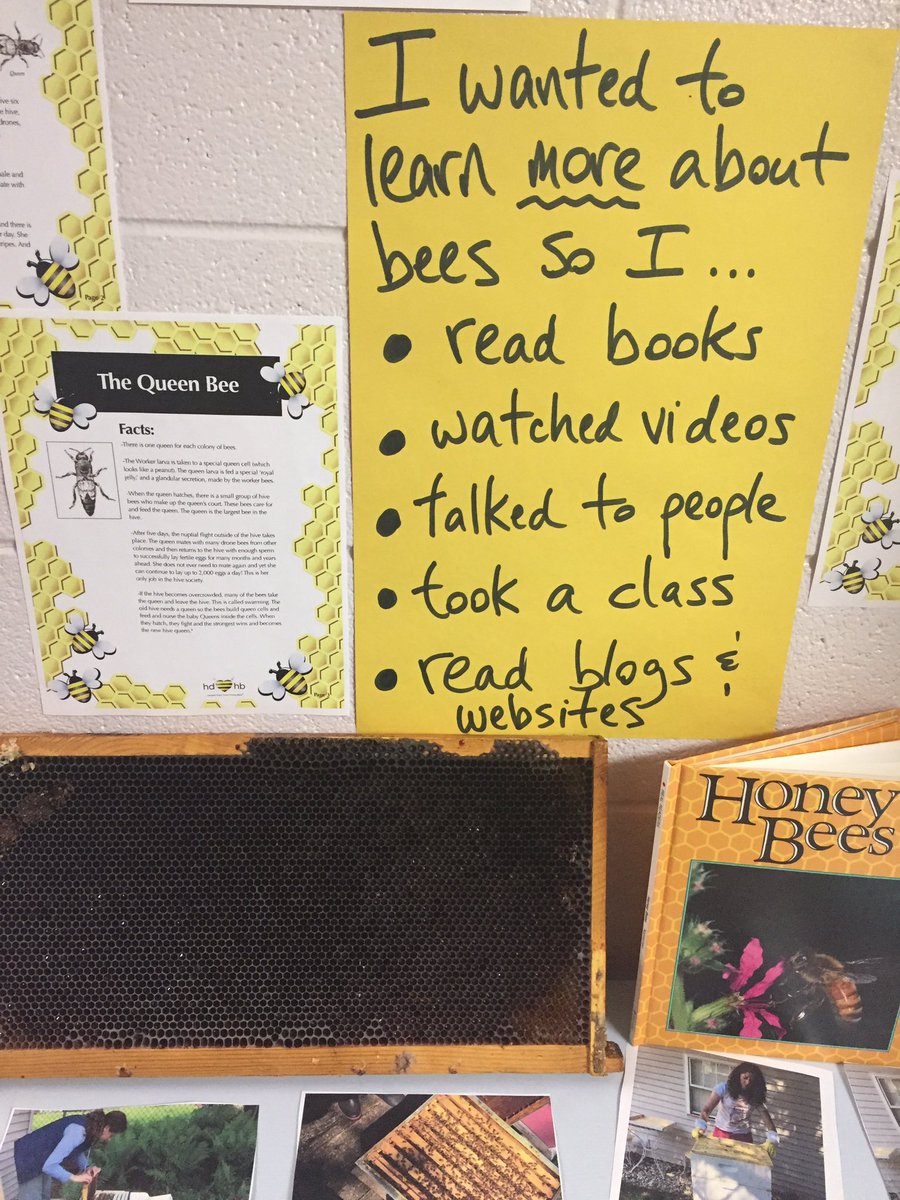 Queen
ive six
e hive,
drones,
ale and
ate with
nd there is
r day. She
ripes. And
Page 2
I wanted to
learn more about
bees so I ...
• read books
• watched videos
• talked to people
• took a class
• read blogs &
websites
The Queen Bee
Facts:
-There is one queen for each colony of bees.
-The Worker larva is taken to a special queen cell (which
looks like a peanut). The queen larva is fed a special 'royal
jelly,' and a glandular secretion, made by the worker bees.
-When the queen hatches, there is a small group of hive
bees who make up the queen's court. These bees care for
and feed the queen. The queen is the largest bee in the
hive.
-After five days, the nuptial flight outside of the hive takes
place. The queen mates with many drone bees from other
colonies and then returns to the hive with enough sperm
to successfully lay fertile eggs for many months and years
ahead. She does not ever need to mate again and yet she
can continue to lay up to 2,000 eggs a day! This is her
only job in the hive society.
-If the hive becomes overcrowded, many of the bees take
the queen and leave the hive. This is called swarming. The
old hive needs a queen so the bees build queen cells and
feed and nurse the baby Queens inside the cells. When
they hatch, they fight and the strongest wins and becomes
the new hive queen.*
hd hb
Page
Honey
Bees